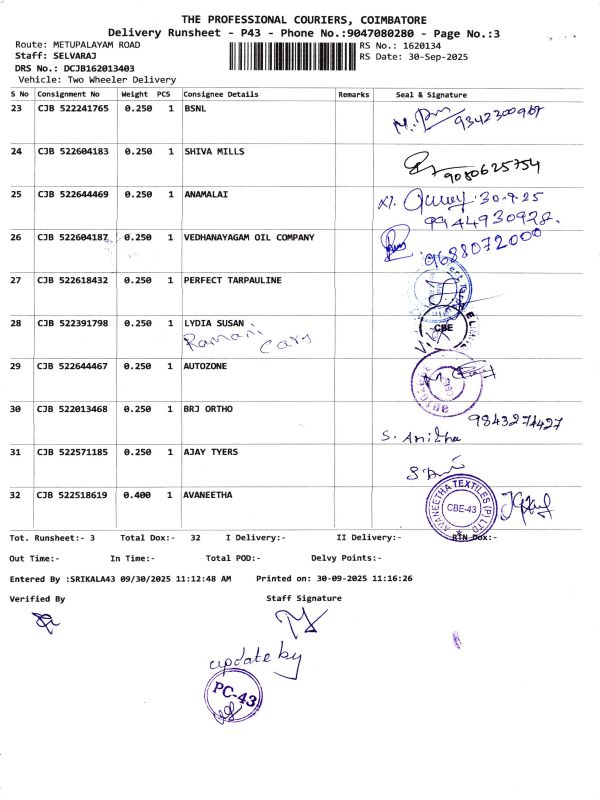 THE PROFESSIONAL COURIERS, COIMBATORE
Delivery Runsheet - P43 - Phone No.:9047080280 - Page No.:3
Route: METUPALAYAM ROAD RS No.: 1620134
Staff: SELVARAJ RS Date: 30-Sep-2025
DRS No.: DCJB162013403
Vehicle: Two Wheeler Delivery
S No Consignment No Weight PCS Consignee Details Remarks Seal & Signature
23 CJB 522241765 0.250 1 BSNL
9342300969
24 CJB 522604183 0.250 1 SHIVA MILLS
9080625754
25 CJB 522644469 0.250 1 ANAMALAI
30-9-25
9944930928
26 CJB 522604187 0.250 1 VEDHANAYAGAM OIL COMPANY
9688072000
27 CJB 522618432 0.250 1 PERFECT TARPAULINE
28 CJB 522391798 0.250 1 LYDIA SUSAN
CBE
Ramani Cars
29 CJB 522644467 0.250 1 AUTOZONE
30 CJB 522013468 0.250 1 BRJ ORTHO
9843271427
S. Anitha
31 CJB 522571185 0.250 1 AJAY TYERS
32 CJB 522518619 0.400 1 AVANEETHA
AVANEETHA TEXTILES (P) LTD
CBE-43
Tot. Runsheet:- 3 Total Dox:- 32 I Delivery:- II Delivery:- RTN Dox:-
Out Time:- In Time:- Total POD:- Delvy Points:-
Entered By :SRIKALA43 09/30/2025 11:12:48 AM Printed on: 30-09-2025 11:16:26
Verified By Staff Signature
update by
PC-43